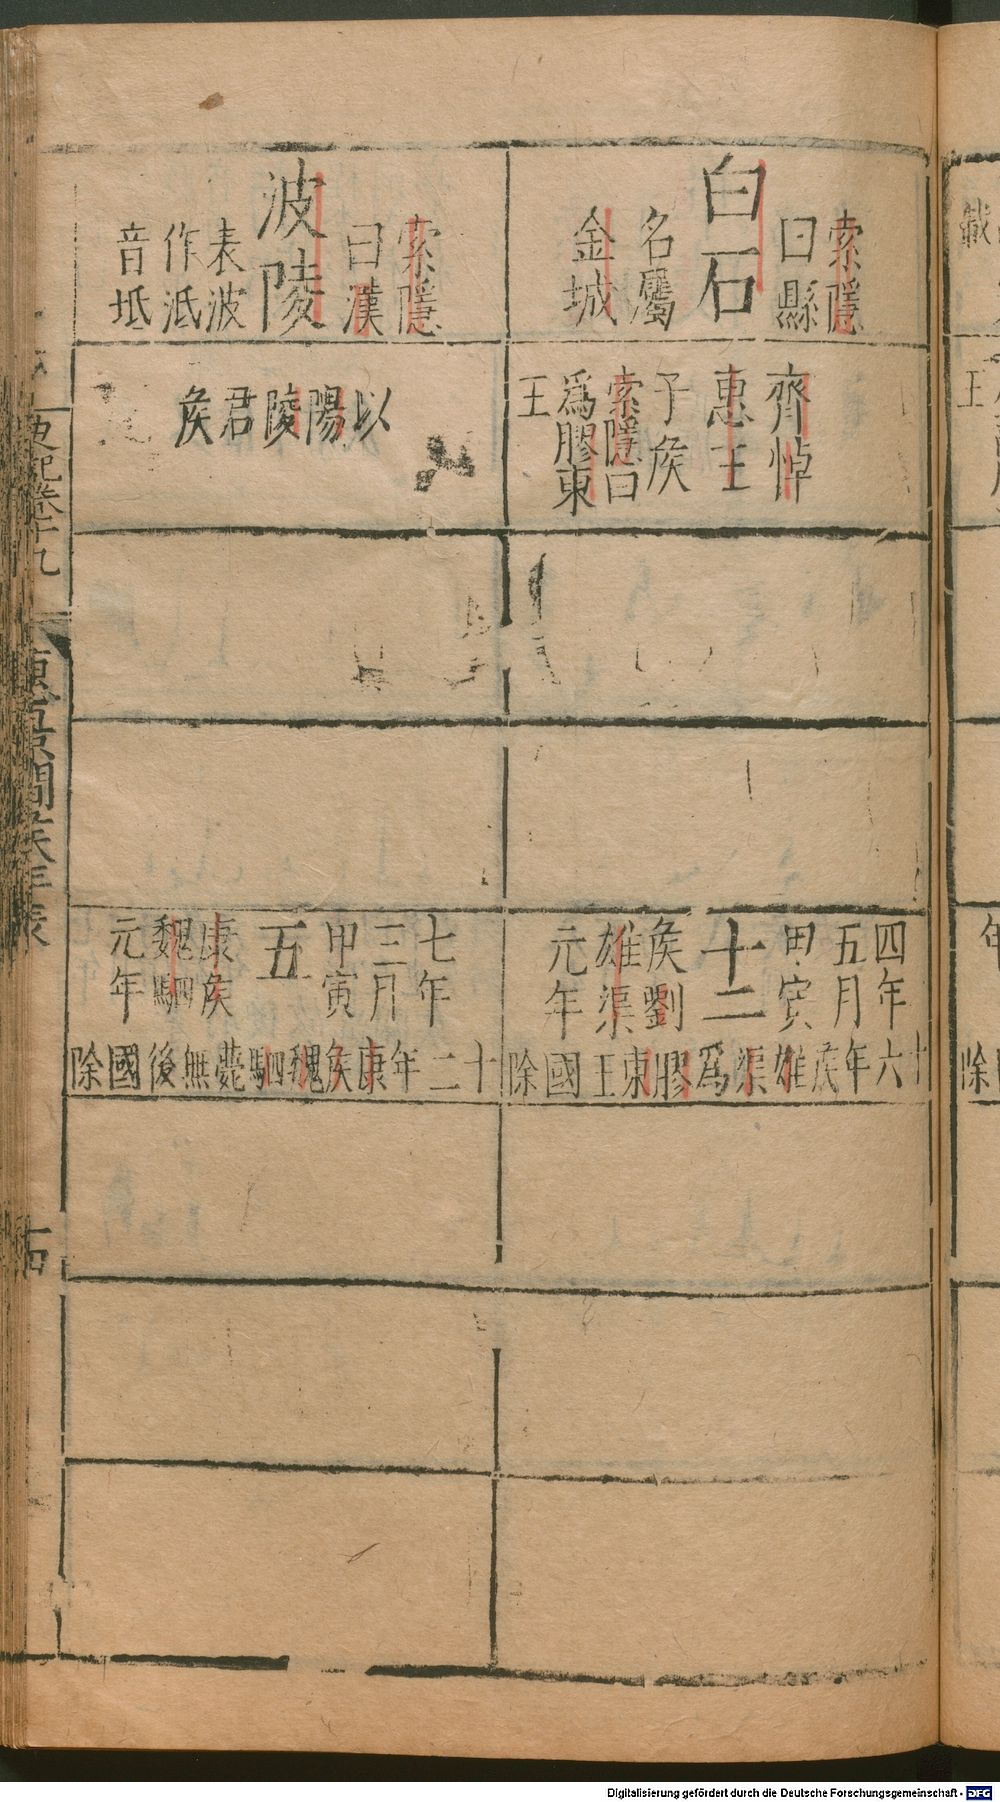 白石
索隱
曰縣
名屬
金城
齊悼
惠王
子侯
索隱曰
爲膠東
王
四年
五月
甲寅
十二
侯劉
雄渠
元年
十六年侯雄渠爲膠東王國除
波陵
索隱
曰漢
表波
作泜
音坻
以陽陵君侯
七年
三月
甲寅
五
康侯
魏駟
元年
十二年康侯魏駟薨無後國除
史記卷十九
惠景間侯年表
十四
Digitalisierung gefördert durch die Deutsche Forschungsgemeinschaft - DFG